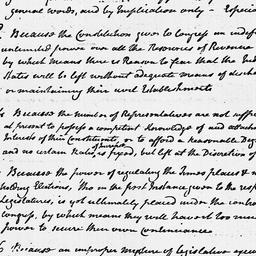 general words, and by Implication only — Especi
Because the Constitution gives to Congress an indef
unlimited power over all the Resources of Revenue
by which means there is Reason to fear that the Ind
States will be left without adequate means of discha
or maintaining their civil Establishments
Because the number of Representatives are not suffi
at present to possess a competent Knowledge of and attach
Interests of their Constituents, or to afford a reasonable Deg
and no certain Ratio of Increase is fixed, but left at the Discretion of
Because the power of regulating the Times places & m
holding Elections, tho in the first Instance given to the resp
Legislatures, is yet ultimately placed under the contro
Congress, by which means they will have it too muc
Power to secure their own continuance
Because an improper mixture of legislative execu